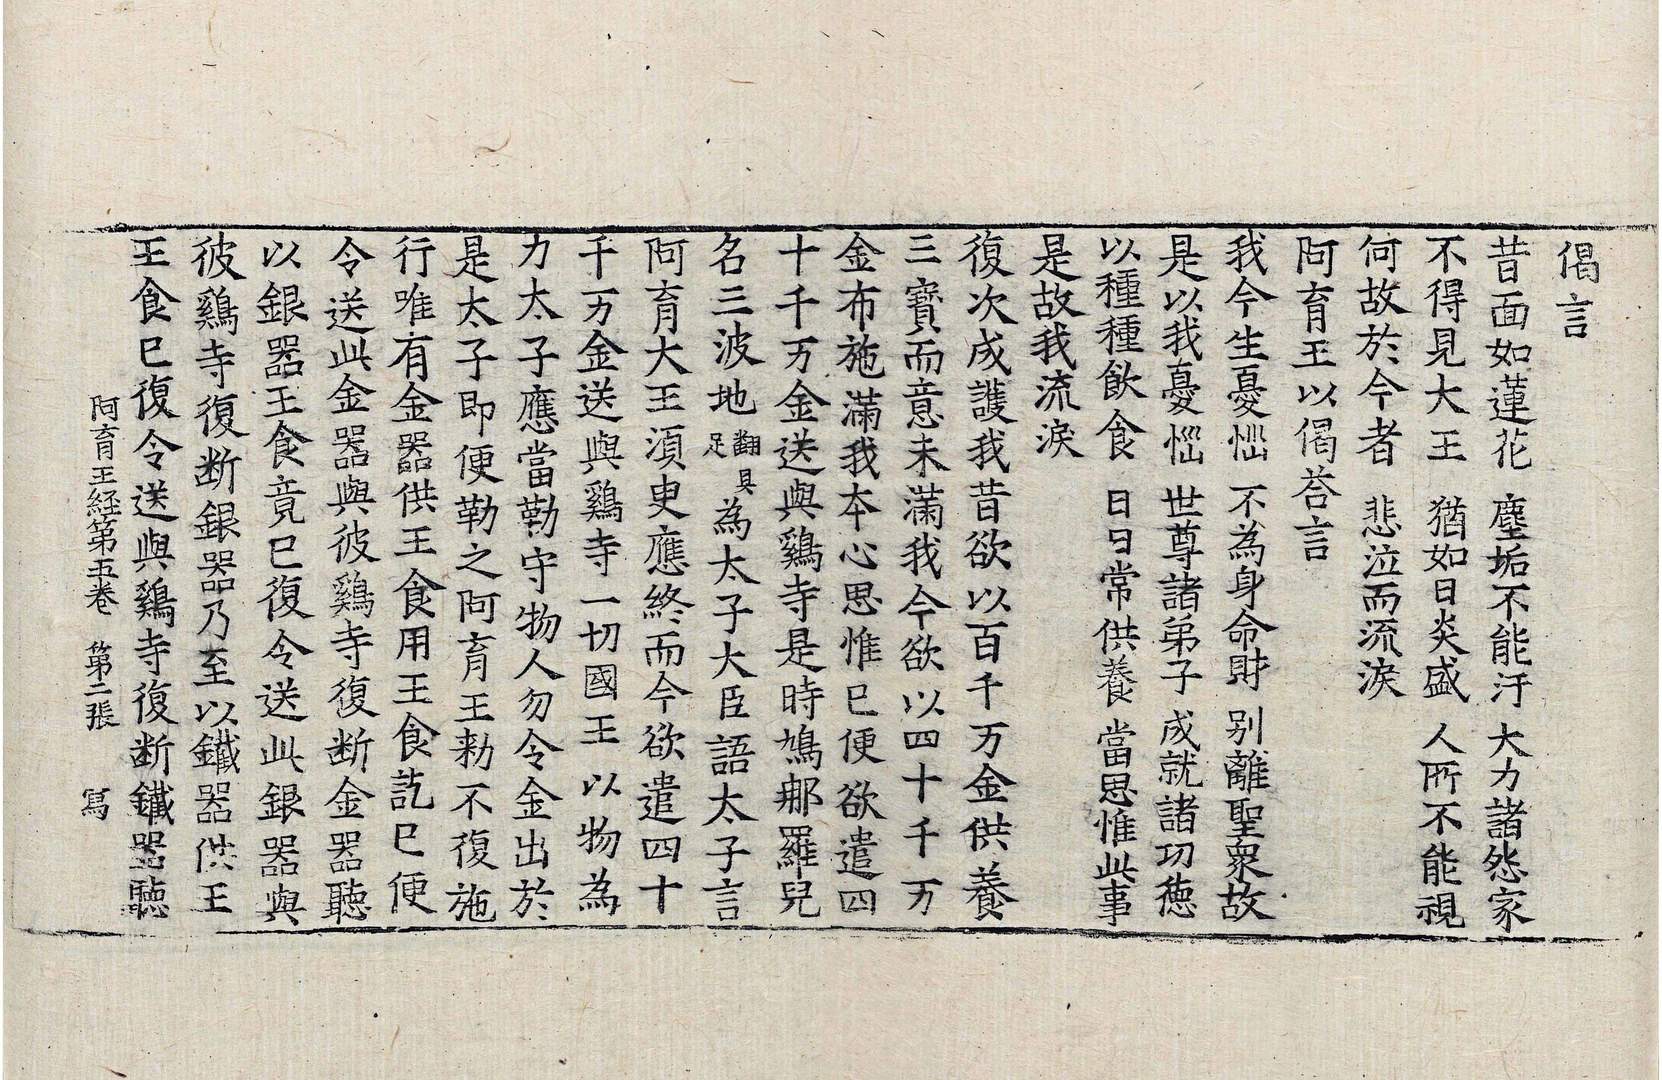 偈言
昔面如蓮花　塵垢不能汙　大力諸怨家
不得見大王　猶如日炎盛　人所不能視
何故於今者　悲泣而流淚
阿育王以偈荅言
我今生憂惱　不為身命財　別離聖衆故
是以我憂惱　世尊諸弟子　成就諸功徳
以種種飲食　日日常供養　當思惟此事
是故我流淚
復次成護我昔欲以百千万金供養
三寶而意未滿我今欲以四十千万
金布施滿我本心思惟已便欲遣四
十千万金送與鷄寺是時鳩那羅兒
名三波地翻具足為太子大臣語太子言
阿育大王湏臾應終而今欲遣四十
千万金送與鷄寺一切國王以物為
力太子應當勒守物人勿令金出於
是太子即便勒之阿育王勑不復施
行唯有金器供王食用王食訖已便
令送此金器與彼鷄寺復断金器聽
以銀器王食竟已復令送此銀器與
彼鷄寺復断銀器乃至以鐵器供王
王食已復令送與鷄寺復断鐵器聽
阿育王経第五巻　第二張　寫